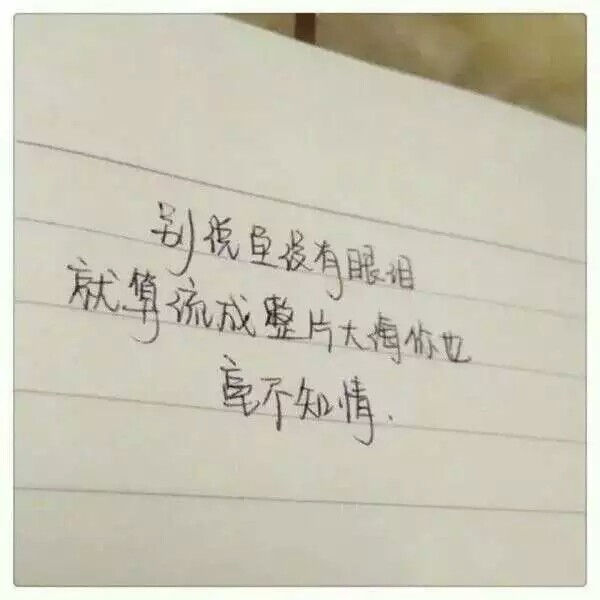 别说鱼没有眼泪
就算流成整片大海你也
毫不知情.